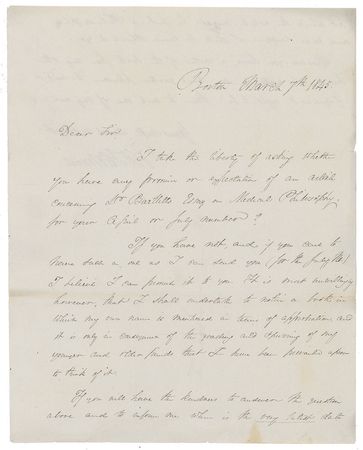 Boston March 7th 1845.
Dear Sir,
I take the liberty of asking whether
you have any promise or expectation of an article
concerning Dr Bartletts Essay on Medical Philosophy,
for your April or July number?
If you have not, and if you care to
have such a one as I can send you (for the July No)
I believe I can promise it to you. It is most unwillingly
however, that I shall undertake to notice a book in
which my own name is mentioned in terms of approbation and
it is only in consequence of the and of my
younger and older friends that I have been persuaded upon
to think of it.
If you will have the kindness to answer the question
above and to inform me when is the very latest date